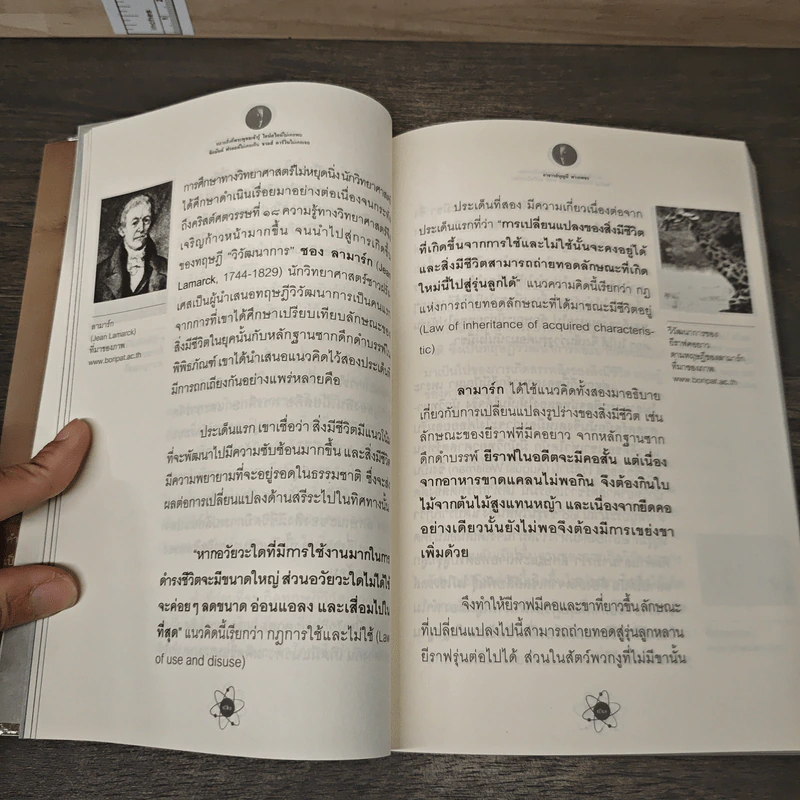 การศึกษาทางวิทยาศาสตร์ไม่หยุดนิ่ง นักวิทยาศาสตร์
ได้ศึกษาดำเนินเรื่อยมาอย่างต่อเนื่องจนกระทั่ง
ถึงคริสต์ศตวรรษที่ ๑๘ ความรู้ทางวิทยาศาสตร์
เจริญก้าวหน้ามากขึ้น จนนำไปสู่การเกิดขึ้น
ของทฤษฎี "วิวัฒนาการ" ของ ลามาร์ก (Jean
Lamarck, 1744-1829) นักวิทยาศาสตร์ชาวฝรั่ง
เศสเป็นผู้นำเสนอทฤษฎีวิวัฒนาการเป็นคนแรก
จากการที่เขาได้ศึกษาเปรียบเทียบลักษณะของ
สิ่งมีชีวิตในยุคนั้นกับหลักฐานซากดึกดำบรรพ์ใน
พิพิธภัณฑ์ เขาได้นำเสนอแนวคิดไว้สองประเด็นที่
มีการถกเถียงกันอย่างแพร่หลายคือ
ลามาร์ก
(Jean Lamarck)
ที่มาของภาพ
www.boripat.ac.th
ประเด็นแรก เขาเชื่อว่า สิ่งมีชีวิตมีแนวโน้ม
ที่จะพัฒนาไปมีความซับซ้อนมากขึ้น และสิ่งมีชีวิต
มีความพยายามที่จะอยู่รอดในธรรมชาติ ซึ่งจะส่ง
ผลต่อการเปลี่ยนแปลงด้านสรีระไปในทิศทางนั้น
"หากอวัยวะใดที่มีการใช้งานมากในการ
ดำรงชีวิตจะมีขนาดใหญ่ ส่วนอวัยวะใดไม่ได้ใช้
จะค่อยๆ ลดขนาด อ่อนแอลง และเสื่อมไปใน
ที่สุด" แนวคิดนี้เรียกว่า กฎการใช้และไม่ใช้ (Law
of use and disuse)
ประเด็นที่สอง มีความเกี่ยวเนื่องต่อจาก
ประเด็นแรกที่ว่า "การเปลี่ยนแปลงของสิ่งมีชีวิต
ที่เกิดขึ้นจากการใช้และไม่ใช้นั้นจะคงอยู่ได้
และสิ่งมีชีวิตสามารถถ่ายทอดลักษณะที่เกิด
ใหม่นี้ไปสู่รุ่นลูกได้" แนวความคิดนี้เรียกว่า กฎ
แห่งการถ่ายทอดลักษณะที่ได้มาขณะมีชีวิตอยู่
(Law of inheritance of acquired characteris-
tic)
วิวัฒนาการของ
ยีราฟคอยาว
ตามทฤษฎีของลามาร์ก
ที่มาของภาพ
www.boripat.ac.th
ลามาร์ก ได้ใช้แนวคิดทั้งสองมาอธิบาย
เกี่ยวกับการเปลี่ยนแปลงรูปร่างของสิ่งมีชีวิต เช่น
ลักษณะของยีราฟที่มีคอยาว จากหลักฐานซาก
ดึกดำบรรพ์ ยีราฟในอดีตจะมีคอสั้น แต่เนื่อง
จากอาหารขาดแคลนไม่พอกิน จึงต้องกินใบ
ไม้จากต้นไม้สูงแทนหญ้า และเนื่องจากยืดคอ
อย่างเดียวนั้นยังไม่พอจึงต้องมีการเขย่งขา
เพิ่มด้วย
จึงทำให้ยีราฟมีคอและขาที่ยาวขึ้น ลักษณะ
ที่เปลี่ยนแปลงไปนี้สามารถถ่ายทอดสู่รุ่นลูกหลาน
ยีราฟรุ่นต่อไปได้ ส่วนในสัตว์พวกงูที่ไม่มีขานั้น